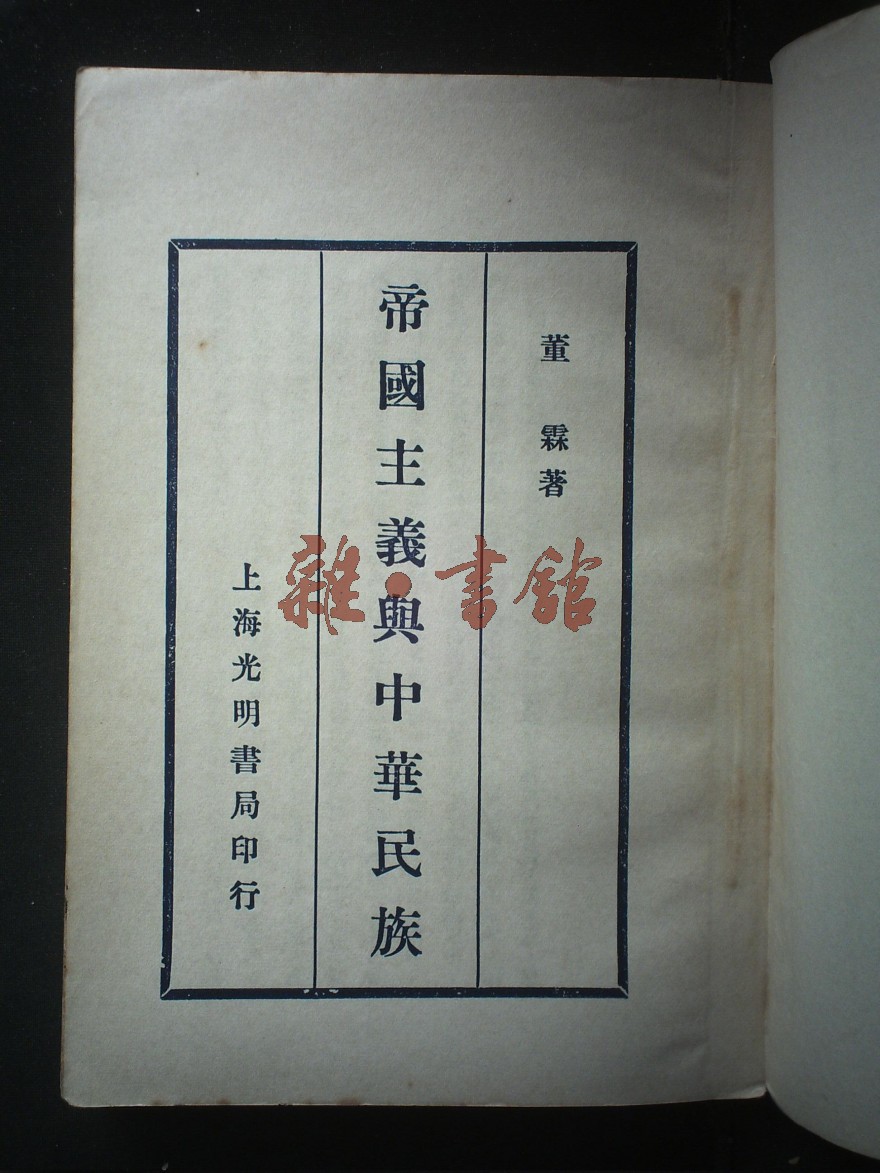 董霖著
帝國主義與中華民族
上海光明書局印行
雜·書館